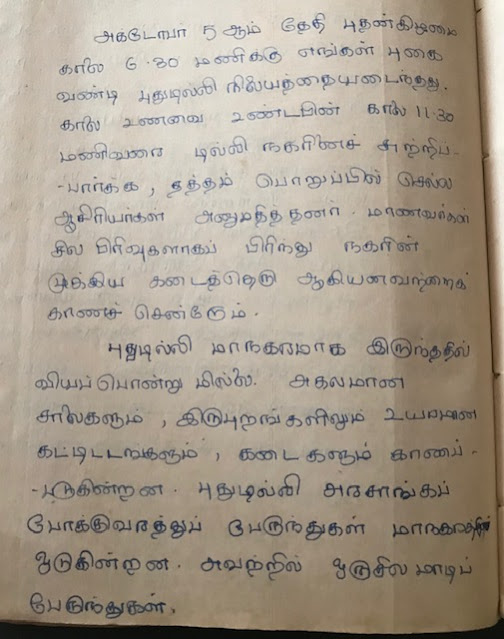 அக்டோபர் 5 ஆம் தேதி புதன்கிழமை
காலை 6.30 மணிக்கு எங்கள் புகை
வண்டி புதுடில்லி நிலையத்தையடைந்தது.
காலை உணவை உண்டபின் காலை 11.30
மணிவரை டில்லி நகரினைச் சுற்றிப்
-பார்க்க, தத்தம் பொறுப்பில் செல்ல
ஆசிரியர்கள் அனுமதித்தனர். மாணவர்கள்
சில பிரிவுகளாகப் பிரிந்து நகரின்
முக்கிய கடைத்தெரு ஆகியனவற்றைக்
காணச் சென்றோம்.
புதுடில்லி மாநகரமாக இருந்ததில்
வியப்பொன்று மில்லை. அகலமான
சாலைகளும், இருபுறங்களிலும் உயரமான
கட்டிடங்களும், கடைகளும் காணப்-
-படுகின்றன. புதுடில்லி அரசாங்கப்
போக்குவரத்துப் பேருந்துகள்
ஓடுகின்றன. அவற்றில் ஒருசில மாடிப்
பேருந்துகள்.